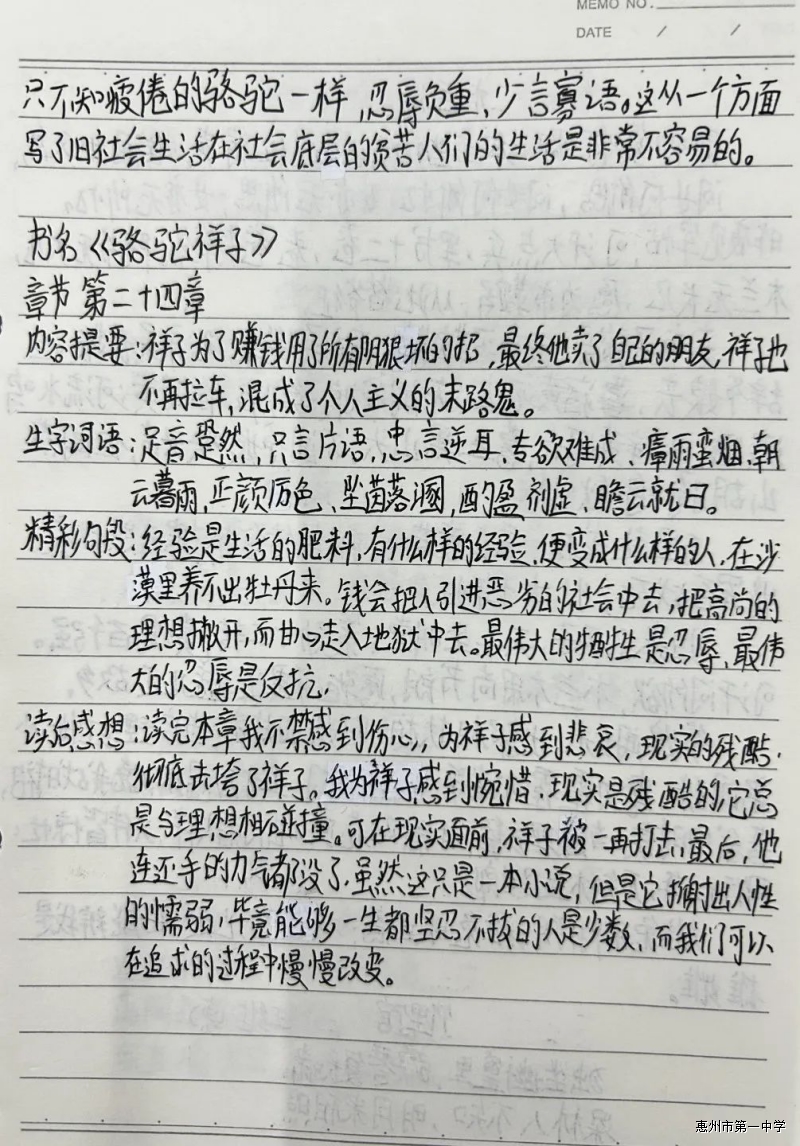 MEMO NO.
DATE / /
只不知疲倦的骆驼一样,忍辱负重、少言寡语。这从一个方面
写了旧社会生活在社会底层的贫苦人们的生活是非常不容易的。
书名《骆驼祥子》
章节 第二十四章
内容提要:祥子为了赚钱用了所有阴狠坏的招,最终他卖了自己的朋友,祥子也
不再拉车,混成了个人主义的末路鬼。
生字词语:足音跫然,只言片语,忠言逆耳、专欲难成、瘴雨蛮烟、朝
云暮雨,正颜厉色、坠茵落溷,酌盈剂虚、瞻云就日。
精彩句段:经验是生活的肥料,有什么样的经验,便变成什么样的人,在沙
漠里养不出牡丹来。钱会把人引进恶劣的社会中去,把高尚的
理想撇开,而甘心走入地狱中去。最伟大的牺牲是忍辱,最伟
大的忍辱是反抗,
读后感想:读完本章我不禁感到伤心,为祥子感到悲哀,现实的残酷,
彻底击垮了祥子。我为祥子感到惋惜,现实是残酷的,它总
是与理想相碰撞。可在现实面前,祥子被一再打击,最后,他
连还手的力气都没了,虽然这只是一本小说,但是它折射出人性
的懦弱,毕竟能够一生都坚忍不拔的人是少数,而我们可以
在追求的过程中慢慢改变。
惠州市第一中学